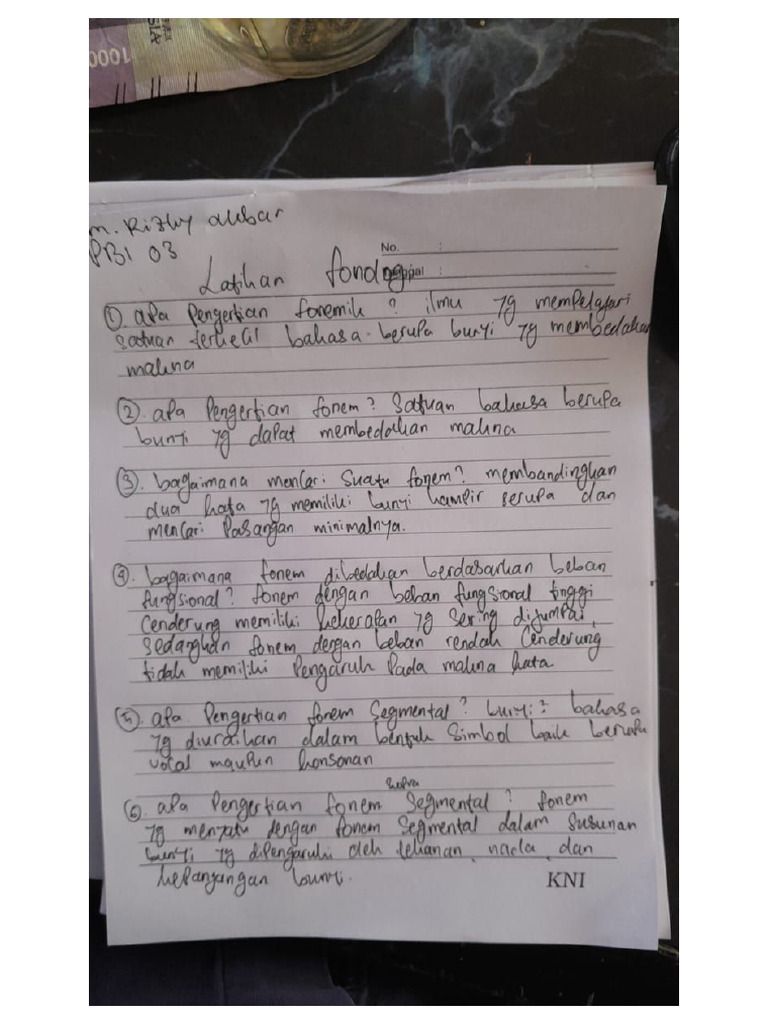 1000
m. Rizky akbar
PBI 03
No. :
Latihan fonologi
Tanggal :
① apa Pengertian fonemik ? ilmu yg mempelajari
satuan terkecil bahasa berupa bunyi yg membedakan
makna
② apa Pengertian fonem? Satuan bahasa berupa
bunyi yg dapat membedakan makna
③. bagaimana mencari suatu fonem? membandingkan
dua kata yg memiliki bunyi hampir serupa dan
mencari Pasangan minimalnya.
④. bagaimana fonem dibedakan berdasarkan beban
fungsional? fonem dengan beban fungsional tinggi
Cenderung memiliki kekerapan yg sering dijumpai,
sedangkan fonem dengan beban rendah Cenderung
tidak memiliki Pengaruh Pada makna kata.
⑤. apa Pengertian fonem Segmental? bunyi² bahasa
yg diuraikan dalam bentuk Simbol baik berupa
vocal maupun konsonan
Supra
⑥. apa Pengertian fonem Segmental ? fonem
yg menyatu dengan fonem Segmental dalam Susunan
bunyi yg dipengaruhi oleh tekanan, nada, dan
kepanjangan bunyi.
KNI